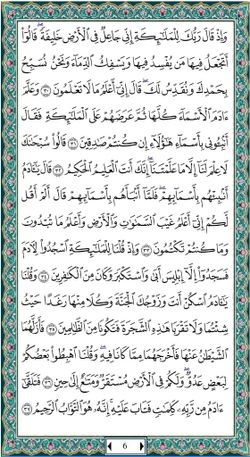 وَإِذْ قَالَ رَبُّكَ لِلْمَلَٰٓئِكَةِ إِنِّي جَاعِلٌ فِي ٱلْأَرْضِ خَلِيفَةً ۖ قَالُوٓا۟
أَتَجْعَلُ فِيهَا مَن يُفْسِدُ فِيهَا وَيَسْفِكُ ٱلدِّمَآءَ وَنَحْنُ نُسَبِّحُ
بِحَمْدِكَ وَنُقَدِّسُ لَكَ ۖ قَالَ إِنِّيٓ أَعْلَمُ مَا لَا تَعْلَمُونَ ٣٠ وَعَلَّمَ
ءَادَمَ ٱلْأَسْمَآءَ كُلَّهَا ثُمَّ عَرَضَهُمْ عَلَى ٱلْمَلَٰٓئِكَةِ فَقَالَ
أَنۢبِـُٔونِي بِأَسْمَآءِ هَٰٓؤُلَآءِ إِن كُنتُمْ صَٰدِقِينَ ٣١ قَالُوا۟ سُبْحَٰنَكَ
لَا عِلْمَ لَنَآ إِلَّا مَا عَلَّمْتَنَآ ۖ إِنَّكَ أَنتَ ٱلْعَلِيمُ ٱلْحَكِيمُ ٣٢ قَالَ يَٰٓـَٔادَمُ
أَنۢبِئْهُم بِأَسْمَآئِهِمْ ۖ فَلَمَّآ أَنۢبَأَهُم بِأَسْمَآئِهِمْ قَالَ أَلَمْ أَقُل
لَّكُمْ إِنِّيٓ أَعْلَمُ غَيْبَ ٱلسَّمَٰوَٰتِ وَٱلْأَرْضِ وَأَعْلَمُ مَا تُبْدُونَ
وَمَا كُنتُمْ تَكْتُمُونَ ٣٣ وَإِذْ قُلْنَا لِلْمَلَٰٓئِكَةِ ٱسْجُدُوا۟ لِءَادَمَ
فَسَجَدُوٓا۟ إِلَّآ إِبْلِيسَ أَبَىٰ وَٱسْتَكْبَرَ وَكَانَ مِنَ ٱلْكَٰفِرِينَ ٣٤ وَقُلْنَا
يَٰٓـَٔادَمُ ٱسْكُنْ أَنتَ وَزَوْجُكَ ٱلْجَنَّةَ وَكُلَا مِنْهَا رَغَدًا حَيْثُ
شِئْتُمَا وَلَا تَقْرَبَا هَٰذِهِ ٱلشَّجَرَةَ فَتَكُونَا مِنَ ٱلظَّٰلِمِينَ ٣٥ فَأَزَلَّهُمَا
ٱلشَّيْطَٰنُ عَنْهَا فَأَخْرَجَهُمَا مِمَّا كَانَا فِيهِ ۖ وَقُلْنَا ٱهْبِطُوا۟ بَعْضُكُمْ
لِبَعْضٍ عَدُوٌّ ۖ وَلَكُمْ فِي ٱلْأَرْضِ مُسْتَقَرٌّ وَمَتَٰعٌ إِلَىٰ حِينٍ ٣٦ فَتَلَقَّىٰٓ
ءَادَمُ مِن رَّبِّهِۦ كَلِمَٰتٍ فَتَابَ عَلَيْهِ ۚ إِنَّهُۥ هُوَ ٱلتَّوَّابُ ٱلرَّحِيمُ ٣٧
6